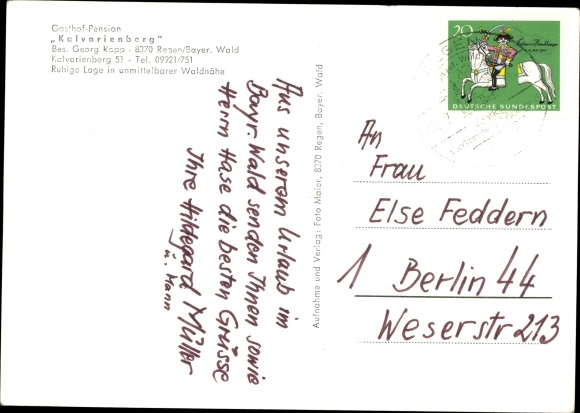 Gasthof-Pension
„Kalvarienberg"
Bes. Georg Kopp - 8370 Regen/Bayer. Wald
Kalvarienberg 51 - Tel. 09921/751
Ruhige Lage in unmittelbarer Waldnähe
Aus unserem Urlaub im
Bayr. Wald senden Ihnen sowie
Herrn Hase die besten Grüsse
Ihre Hildegard Müller
u. Mann
Aufnahme und Verlag: Foto Maier, 8370 Regen, Bayer. Wald
20
DEUTSCHE BUNDESPOST
REGEN
An
Frau
Else Feddern
1 Berlin 44
Weserstr 213